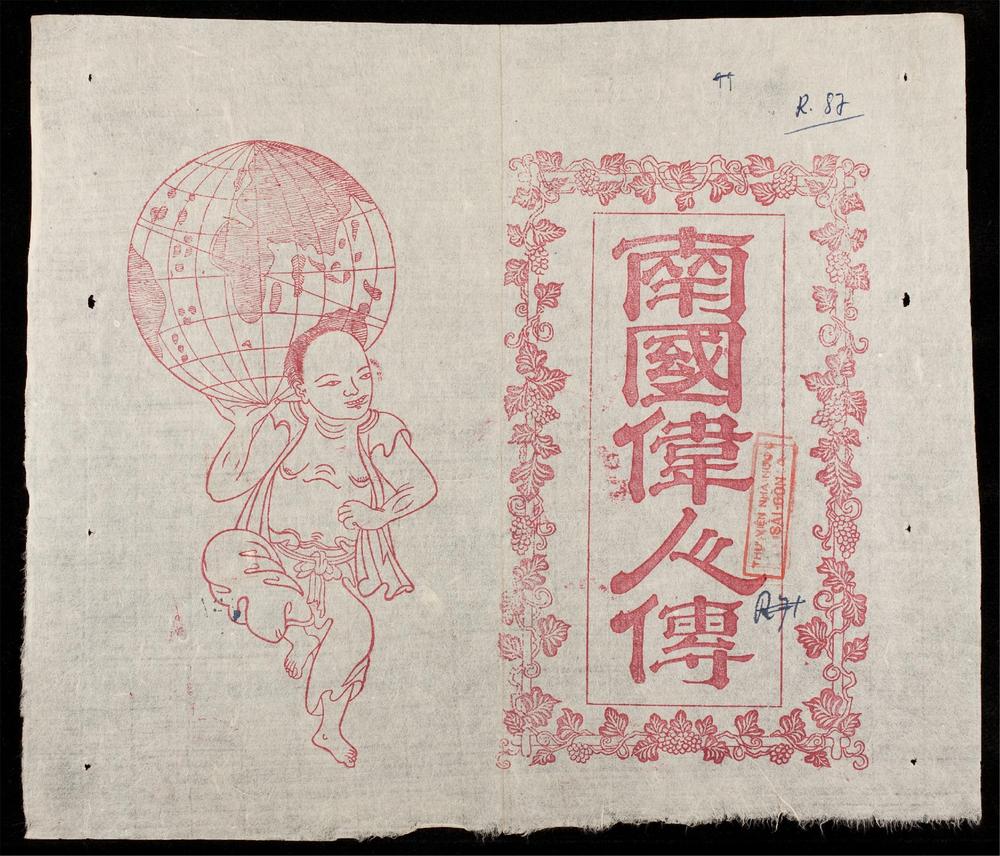 R. 87
南國偉人傳
THƯ VIỆN NHÀ NƯỚC
SÀI GÒN
R 71